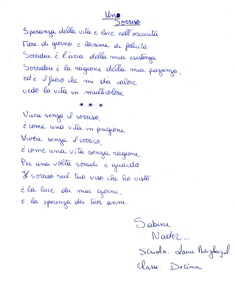 Uno
Sorriso
Speranza della vita e luce nell'oscurità
Fiore di giorno e di felicità
Sorridere è l'aria della mia esistenza
Sorridere è la ragione della mia pazienza,
ed è il fuoco che mi dà calore
vedo la vita in multicolore
* * *
Vivere senza il sorriso,
è come una vita in prigione
Vivere senza il sorriso,
è come una vita senza ragione
Per una volta sorridi e guarda
Il sorriso sul tuo viso che ho visto
è la luce dei miei giorni,
e la speranza dei tuoi anni.
Sabine
Scuola:
Classe Decima